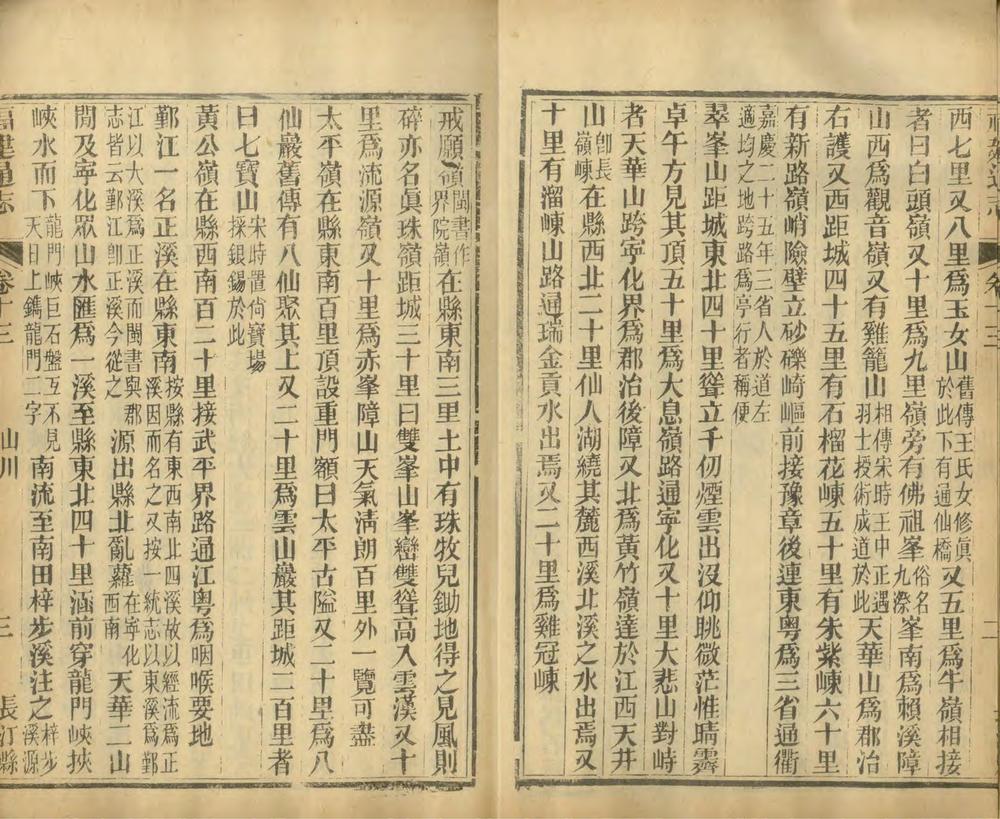 西七里又八里爲玉女山舊傳王氏女修眞於此下有通仙橋又五里爲牛嶺相接
者曰白頭嶺又十里爲九里嶺旁有佛祖峯俗名九漈峯南爲賴溪障
山西爲觀音嶺又有雞籠山相傳宋時王中正遇羽士授術成道於此天華山爲郡治
右護又西距城四十五里有石榴花崠五十里有朱紫崠六十里
有新路嶺峭險壁立砂礫崎嶇前接豫章後連東粤爲三省通衢
嘉慶二十五年三省人於道左適均之地跨路爲亭行者稱便
翠峯山距城東北四十里聳立千仞煙雲出沒仰眺微茫惟晴霽
卓午方見其頂五十里爲大息嶺路通寧化又十里大悲山對峙
者天華山跨寧化界爲郡治後障又北爲黃竹嶺達於江西天井
山卽長嶺崠在縣西北二十里仙人湖繞其麓西溪北溪之水出焉又
十里有溜崠山路通瑞金貢水出焉又二十里爲雞冠崠
戒願嶺閩書作界院嶺在縣東南三里土中有珠牧兒鋤地得之見風則
碎亦名眞珠嶺距城三十里曰雙峯山峯巒雙聳高入雲漢又十
里爲流源嶺又十里爲赤峯障山天氣淸朗百里外一覽可盡
太平嶺在縣東南百里頂設重門額曰太平古隘又二十里爲八
仙巖舊傳有八仙聚其上又二十里爲雲山巖其距城二百里者
曰七寶山宋時置尙寶場採銀錫於此
黃公嶺在縣西南百二十里接武平界路通江粤爲咽喉要地
鄞江一名正溪在縣東南按縣有東西南北四溪故以經流爲正溪因而名之又按一統志以東溪爲鄞
江以大溪爲正溪而閩書與郡志皆云鄞江卽正溪今從之源出縣北亂蘿在寧化西南天華二山
閒及寧化眾山水匯爲一溪至縣東北四十里涵前穿龍門峽挾
峽水而下龍門峽巨石盤互不見天日上鐫龍門二字南流至南田梓步溪注之梓步溪源
福建通志
卷十三
山川
三
長汀縣